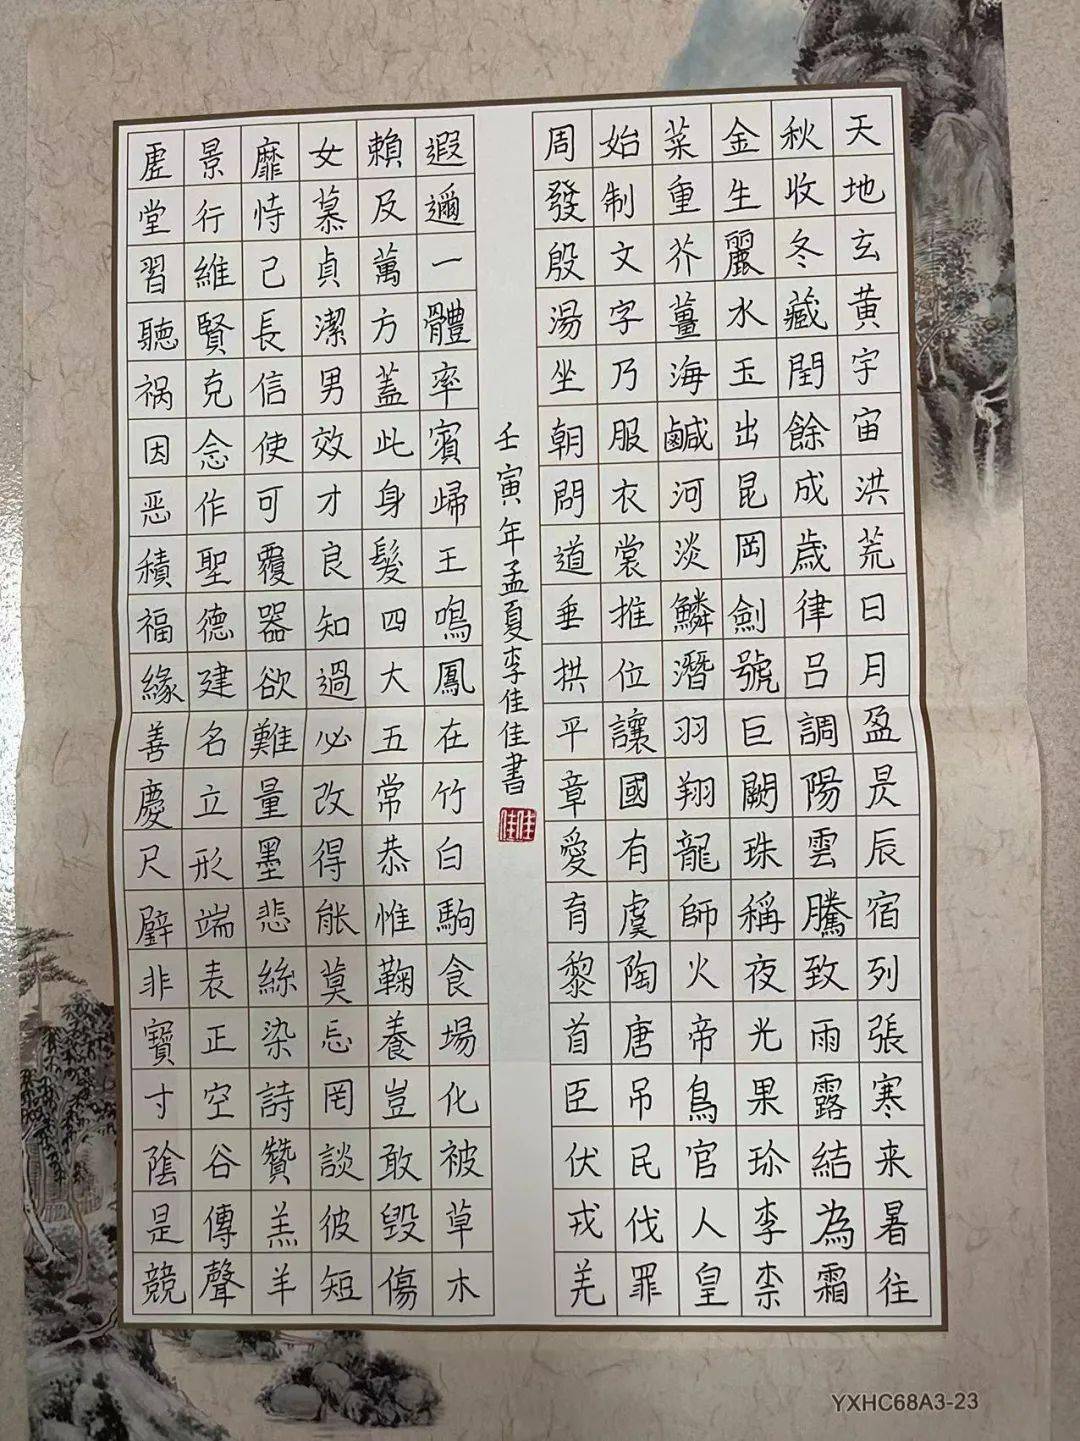 天地玄黄宇宙洪荒日月盈昃辰宿列張寒来暑往
秋收冬藏閏餘成歲律吕調陽雲騰致雨露結為霜
金生麗水玉出昆岡劍號巨闕珠稱夜光果珍李柰
菜重芥薑海鹹河淡鱗潛羽翔龍師火帝鳥官人皇
始制文字乃服衣裳推位讓國有虞陶唐吊民伐罪
周發殷湯坐朝問道垂拱平章愛育黎首臣伏戎羌
壬寅年孟夏李佳佳書
佳佳
遐邇一體率賓歸王鳴鳳在竹白駒食場化被草木
賴及萬方蓋此身髮四大五常恭惟鞠養豈敢毀傷
女慕貞潔男效才良知過必改得能莫忘罔談彼短
靡恃己長信使可覆器欲難量墨悲絲染詩贊羔羊
景行維賢克念作聖德建名立形端表正空谷傳聲
虛堂習聽禍因恶積福緣善慶尺璧非寶寸陰是競
YXHC68A3-23